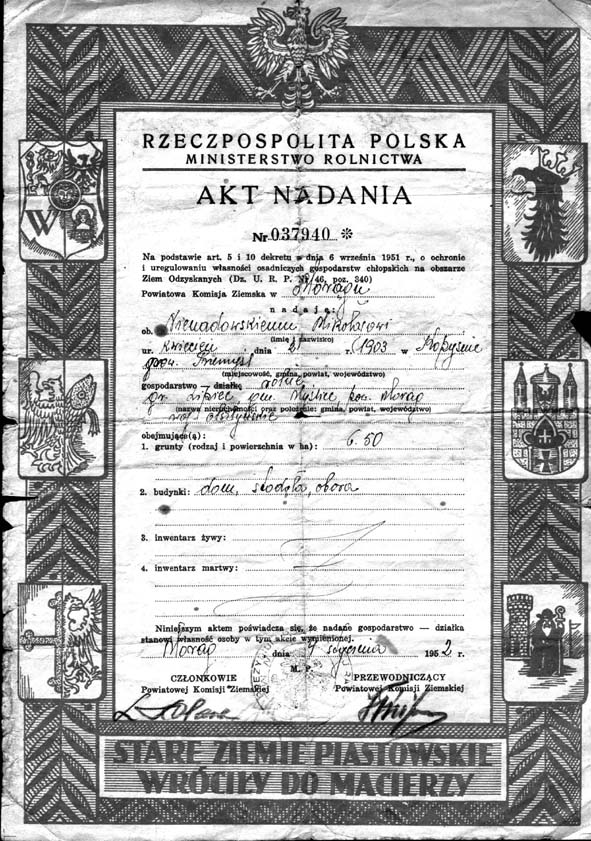 RZECZPOSPOLITA POLSKA
MINISTERSTWO ROLNICTWA
AKT NADANIA
Nr 037940 *
Na podstawie art. 5 i 10 dekretu z dnia 6 września 1951 r., o ochronie
i uregulowaniu własności osadniczych gospodarstw chłopskich na obszarze
Ziem Odzyskanych (Dz. U. R. P. Nr 46, poz. 340)
Powiatowa Komisja Ziemska w Morągu
nadaje:
ob. Nienadowskiemu Mikołajowi
(imię i nazwisko)
ur. kwiecień dnia 2 r. 1903 w
pow. Przemyśl
(miejscowość, gmina, powiat, województwo)
gospodarstwo — działkę rolne
gr. Lipiec, gm. Myślice, pow. Morąg
(nazwa nieruchomości oraz położenie: gmina, powiat, województwo)
woj. olsztyńskie
obejmujące(ą):
1. grunty (rodzaj i powierzchnia w ha): 6.50
2. budynki: dom, stodoła, obora
3. inwentarz żywy:
4. inwentarz martwy:
Niniejszym aktem poświadcza się, że nadane gospodarstwo — działka
stanowi własność osoby w tym akcie wymienionej.
Morąg dnia 7 stycznia 1952 r.
M. P.
CZŁONKOWIE PRZEWODNICZĄCY
Powiatowej Komisji Ziemskiej Powiatowej Komisji Ziemskiej
STARE ZIEMIE PIASTOWSKIE
WRÓCIŁY DO MACIERZY
W